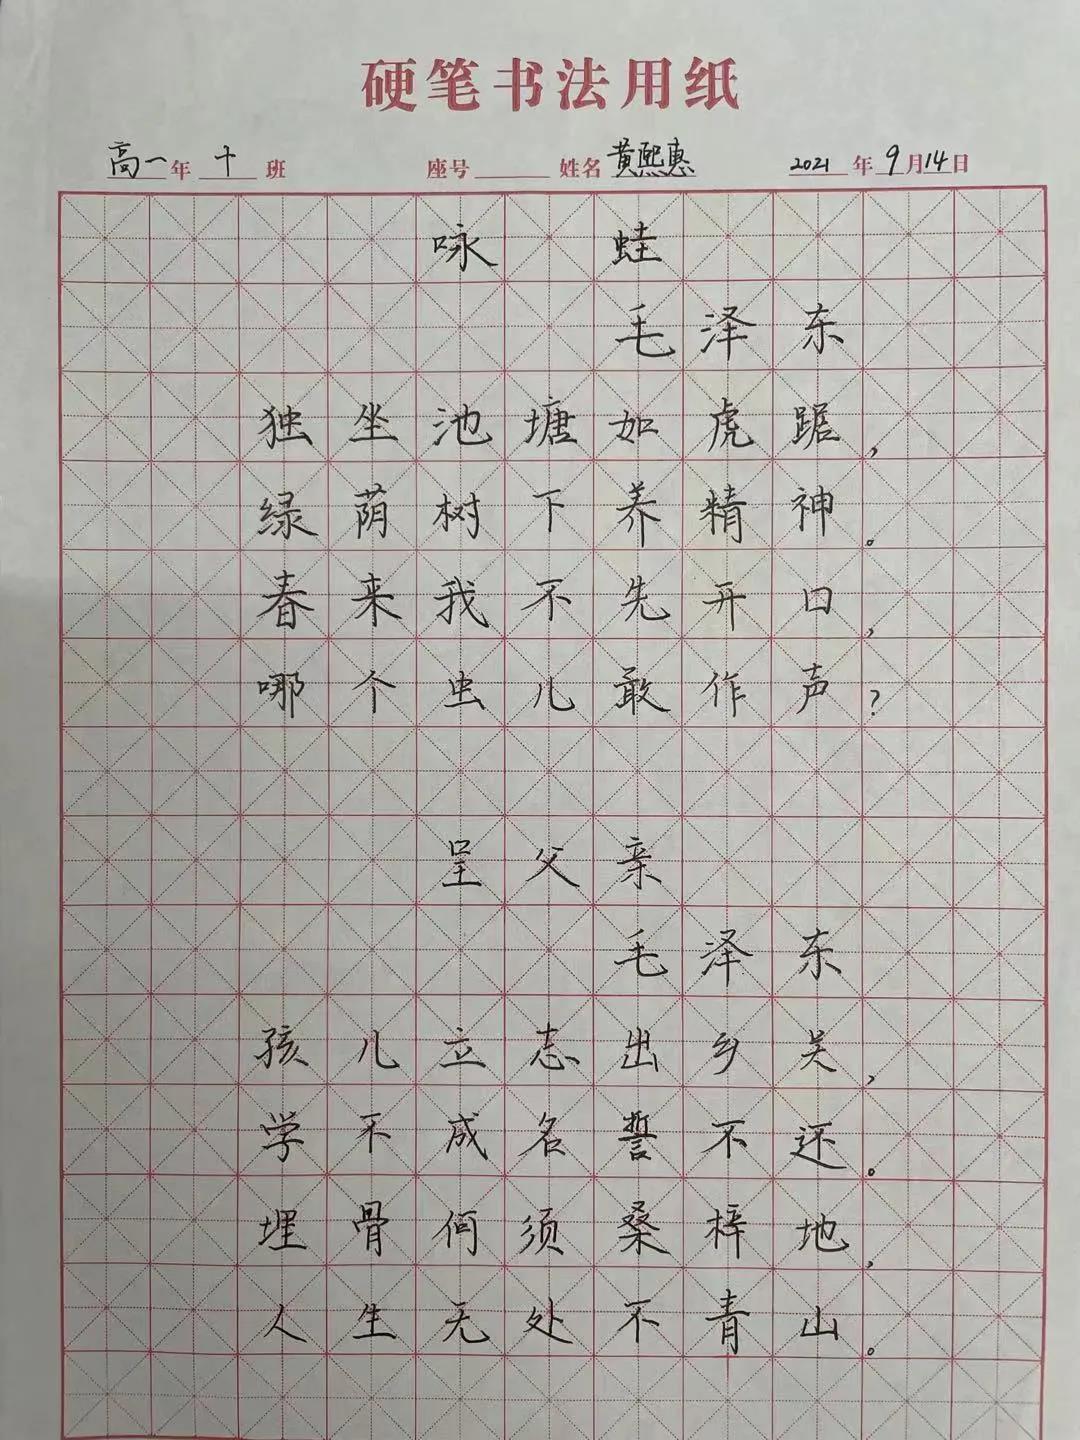 硬笔书法用纸
高一年 十 班 座号 姓名 黄熙惠 2021 年 9 月 14 日
咏 蛙
毛泽东
独坐池塘如虎踞,
绿荫树下养精神。
春来我不先开口,
哪个虫儿敢作声?
呈父亲
毛泽东
孩儿立志出乡关,
学不成名誓不还。
埋骨何须桑梓地,
人生无处不青山。